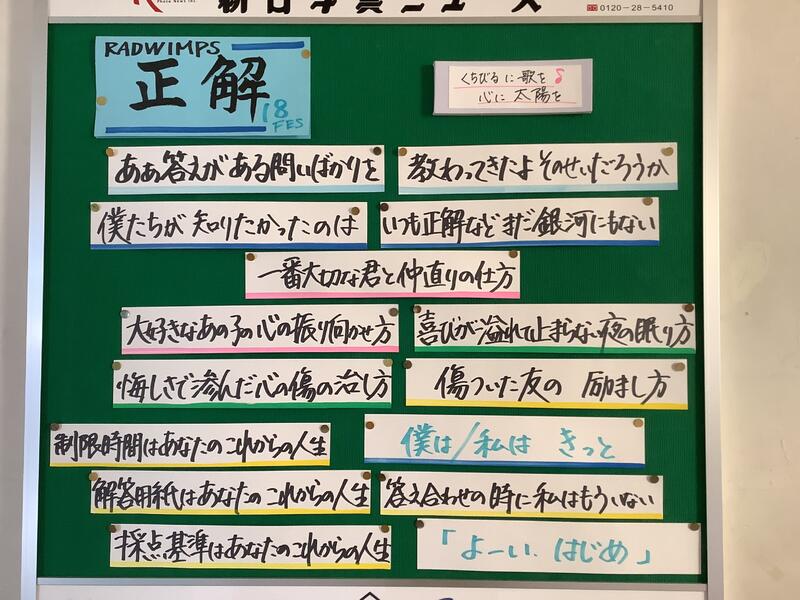 Photo News Inc.
新日本写真ニュース
0120-28-5410
RADWIMPS
正解
18
FES
くちびるに歌を♪
心に太陽を
あぁ答えがある問いばかりを
教わってきたよ そのせいだろうか
僕たちが知りたかったのは
いつも正解などまだ銀河にもない
一番大切な君と仲直りの仕方
大好きなあの子の心の振り向かせ方
喜びが溢れて止まらない夜の眠り方
悔しさで滲んだ心の傷の治し方
傷ついた友の 励まし方
制限時間はあなたのこれからの人生
僕は/私は きっと
解答用紙はあなたのこれからの人生
答え合わせの時に私はもういない
採点基準はあなたのこれからの人生
「よーい、はじめ」